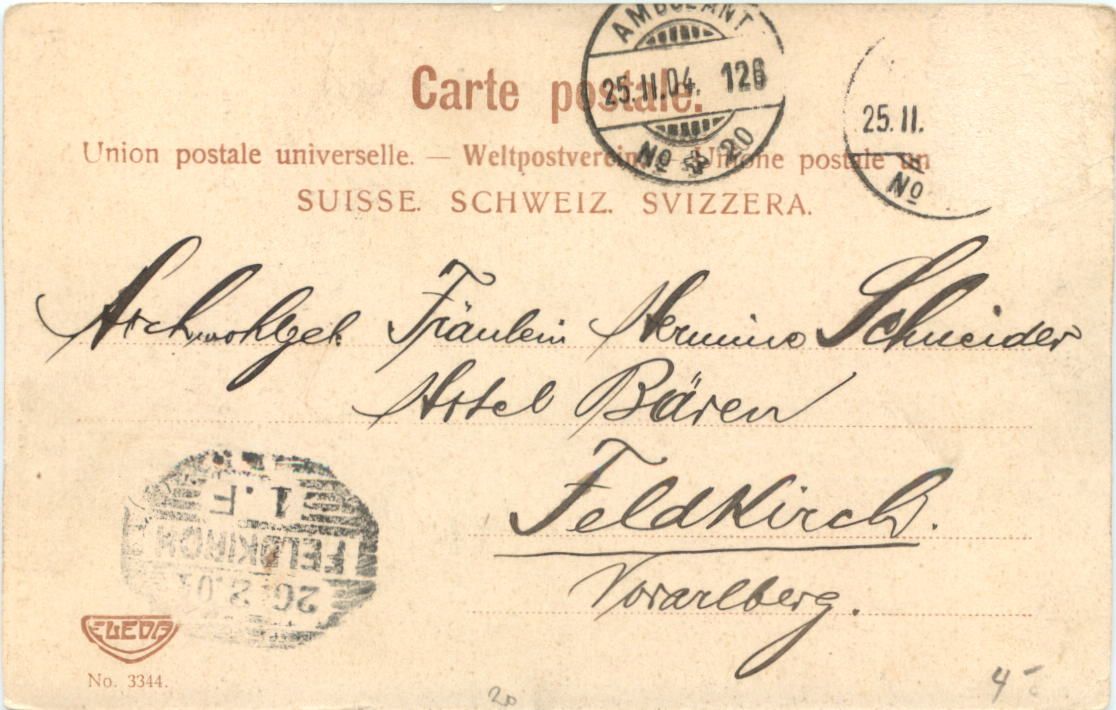 AMBULANT
25.II.04. 126
No 20
25.II.
No
Carte postale.
Union postale universelle. — Weltpostverein — Unione postale un
SUISSE. SCHWEIZ. SVIZZERA.
Hochwohlgeb. Fräulein Hermine Schneider
Hotel Bären
Feldkirch.
Vorarlberg.
FELDKIRCH
No. 3344.
20